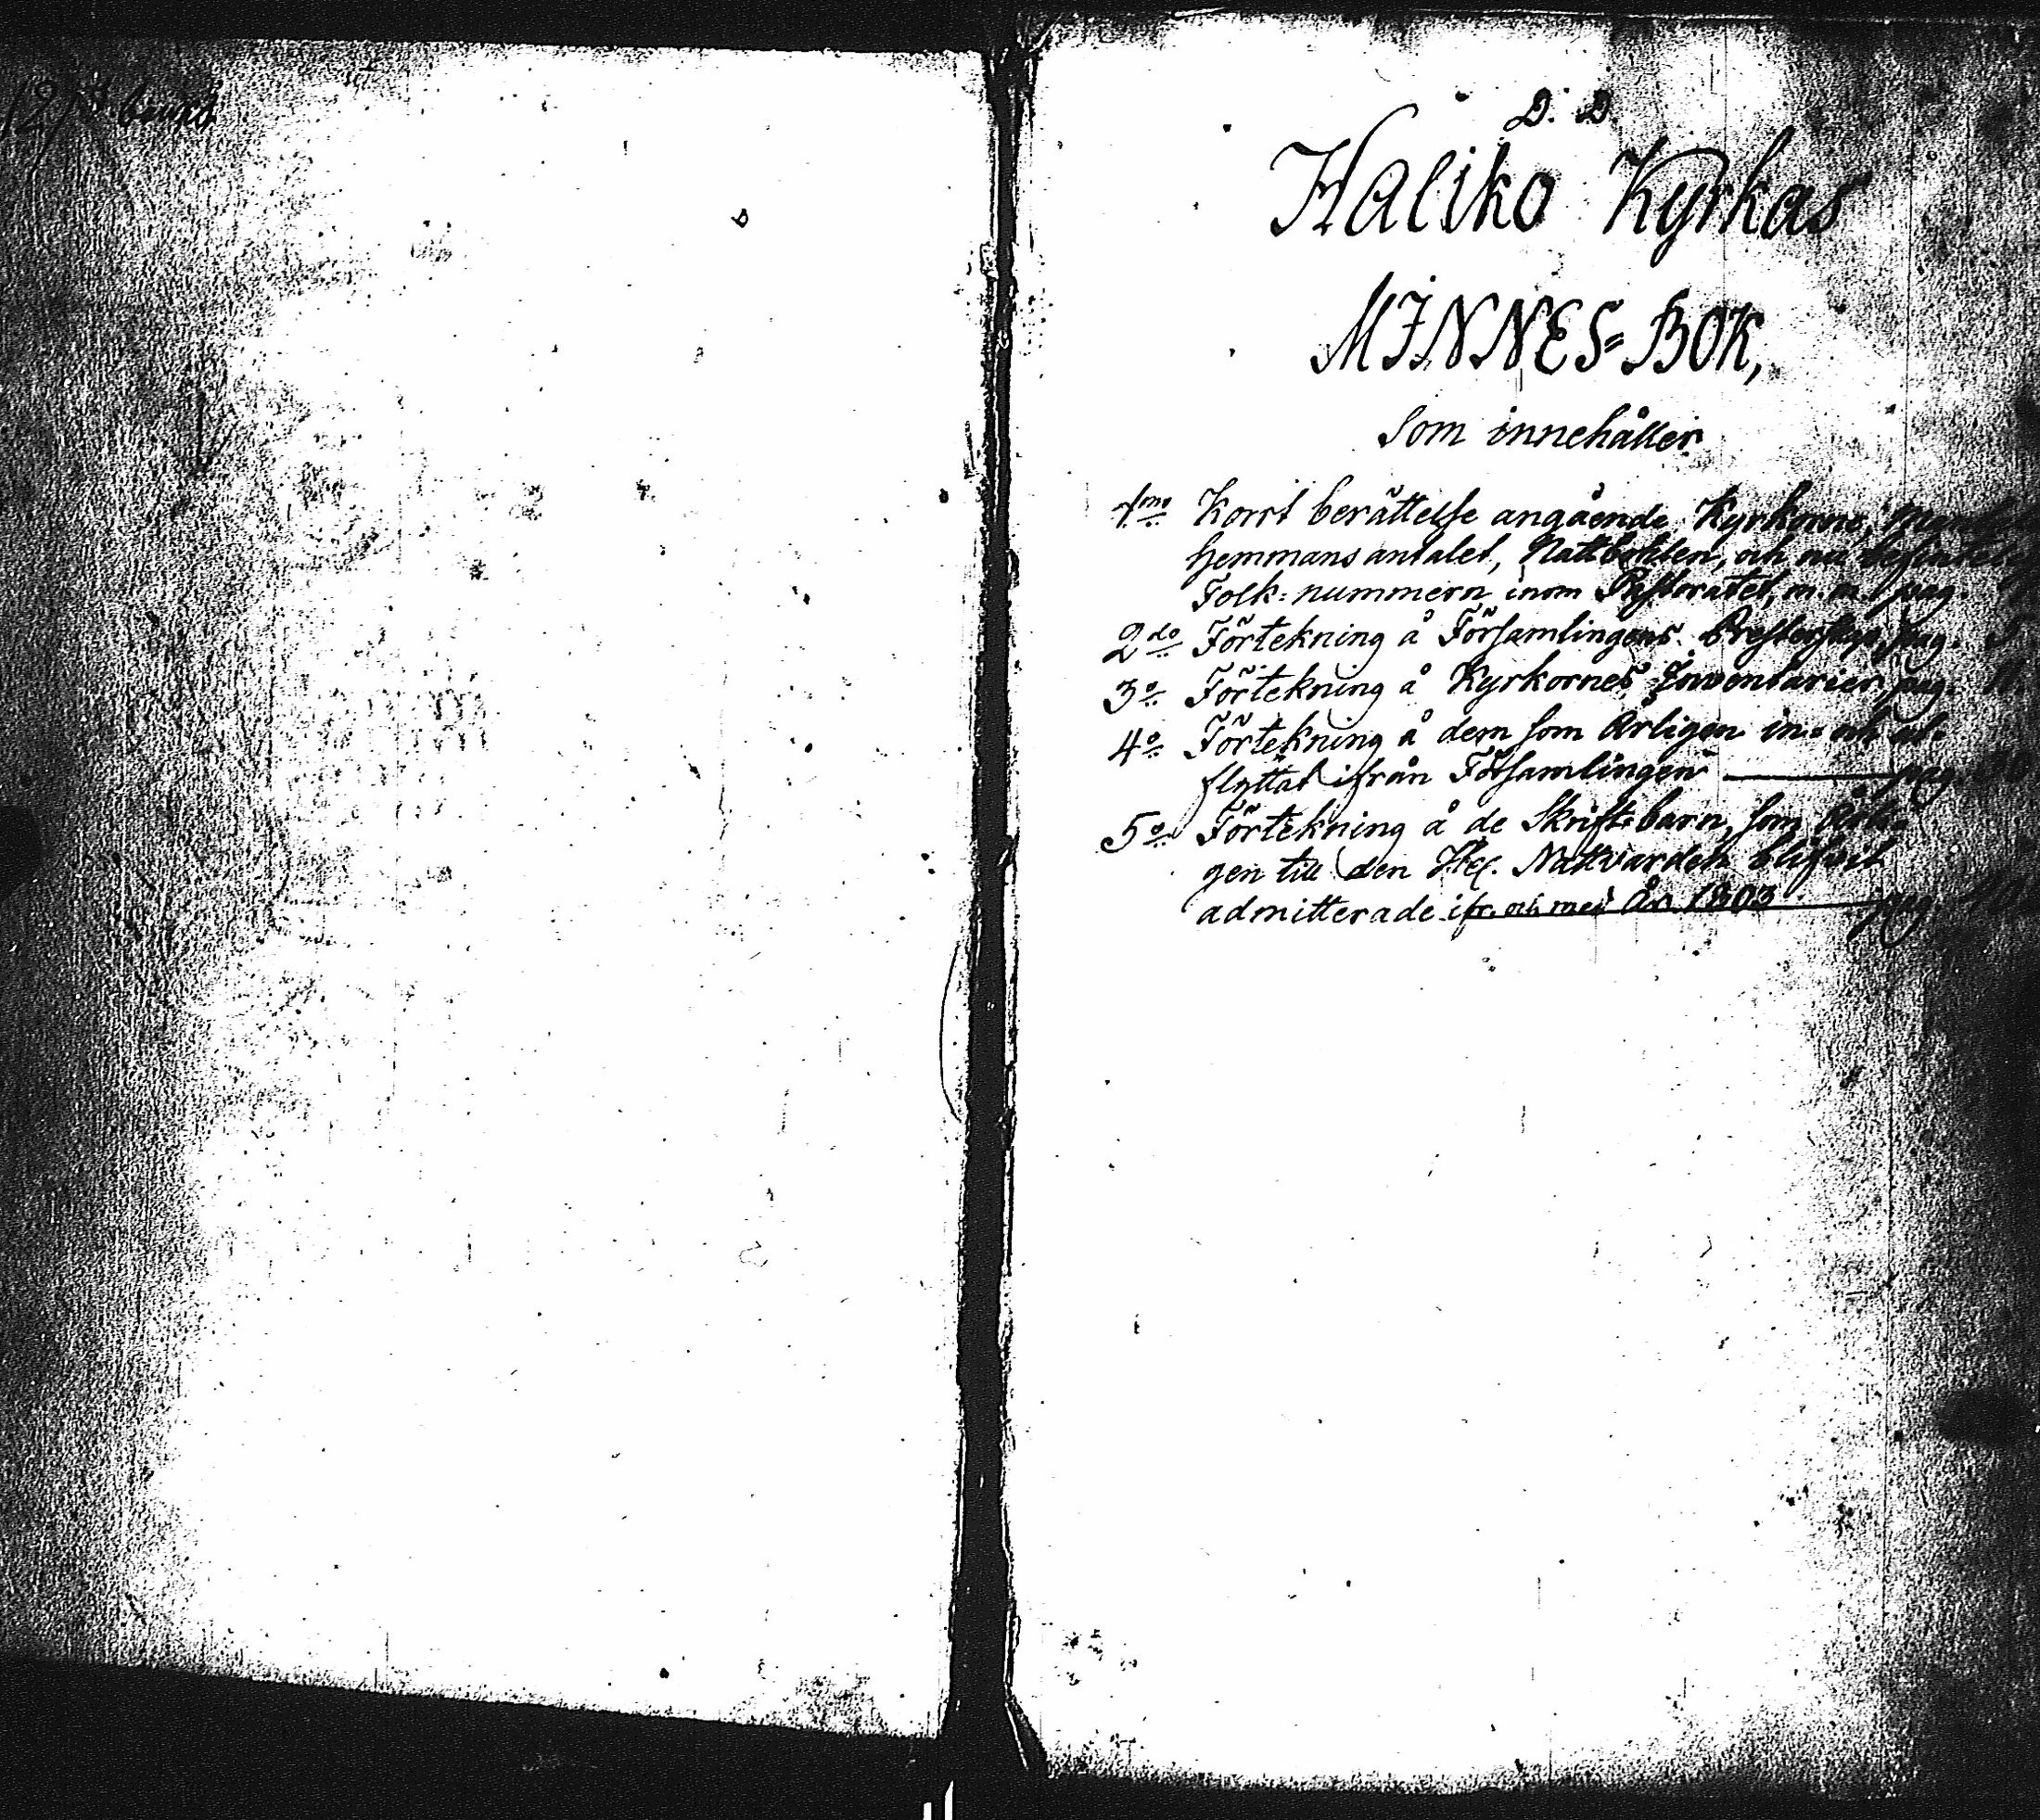 D. D.
Haliko Kyrkas
MINNES=BOK,
Som innehåller
1mo Kort berättelse angående Kyrkorne,
Hemmans antalet, och
Folk=nummern inom Pastoratet, m.m. pag.
2do Förtekning å Församlingens Presterskap, pag.
3o Förtekning å Kyrkornes Inventarier, pag.
4o Förtekning å dem som årligen in= och ut=
flyttat ifrån Församlingen pag
5o Förtekning å de Skrift=barn, som årli=
gen till den Hel. Nattvarden blifvit
admitterade ifr. och med År 1803 pag